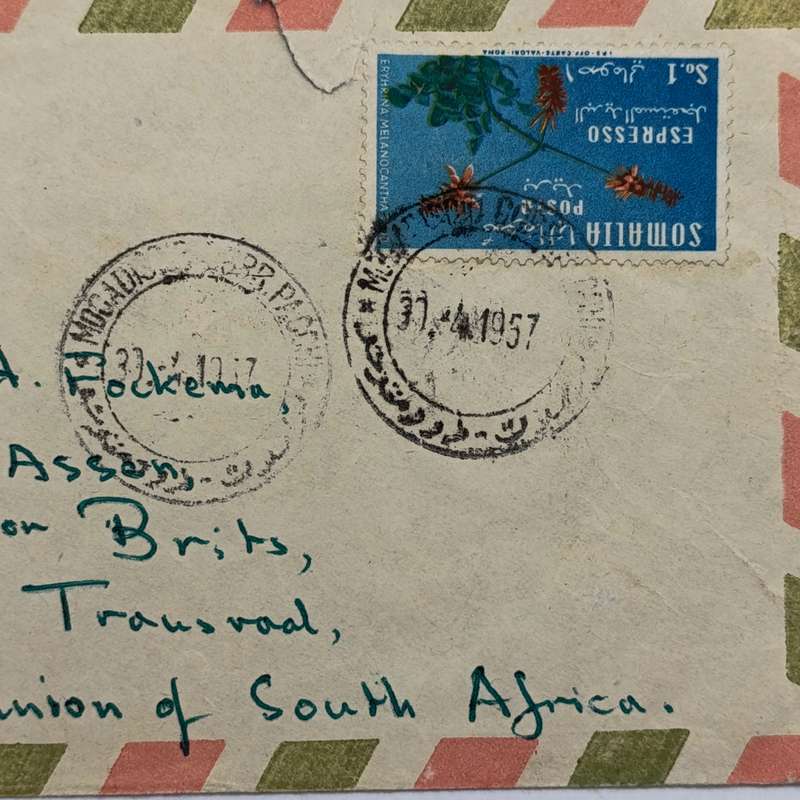 I.P.S-OFF. CARTE-VALORI-ROMA
So.1
١ صومالي
ERYTHRINA MELANOCANTHA
البريد المستعجل
ESPRESSO
بريد
POSTA
SOMALIA
MOGADISCIO CORR. PACCHI
30.-4.1957
MOGADISCIO CORR. PACCHI
30.-4.1957
A. Hockema,
Assen,
on Brits,
Transvaal,
union of South Africa.